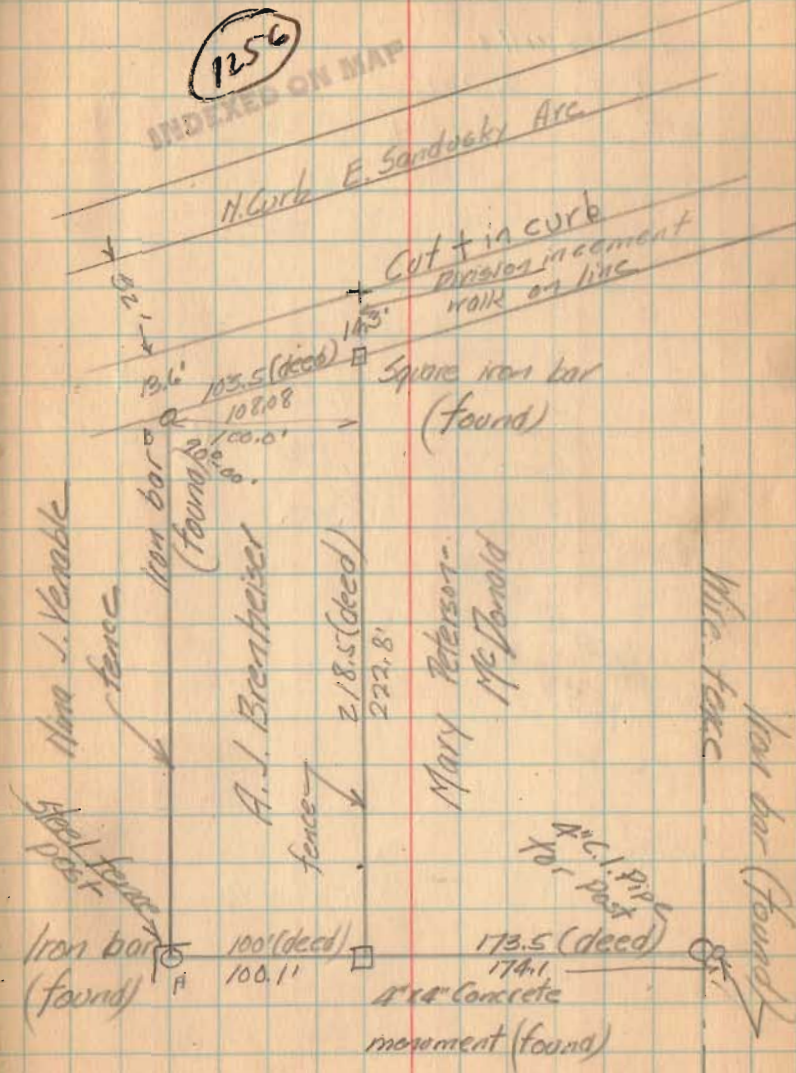 1256
INDEXED ON MAP
N. Curb E. Sandusky Ave
Cut + in curb
Division in cement
walk on line
29'
14.3'
13.6'
103.5 (deed)
108.08
100.0'
Square iron bar
(found)
B
Iron bar
(found)
Nina J. Venable
fence
A. J. Brenheiser
218.5 (deed)
222.8'
fence
Mary Peterson-
McDonald
Wire fence
Iron bar (found)
Steel fence
post
4" C.I. Pipe
for post
Iron bar
(found)
A
100' (deed)
100.1'
173.5 (deed)
174.1
4"x4" Concrete
monument (found)